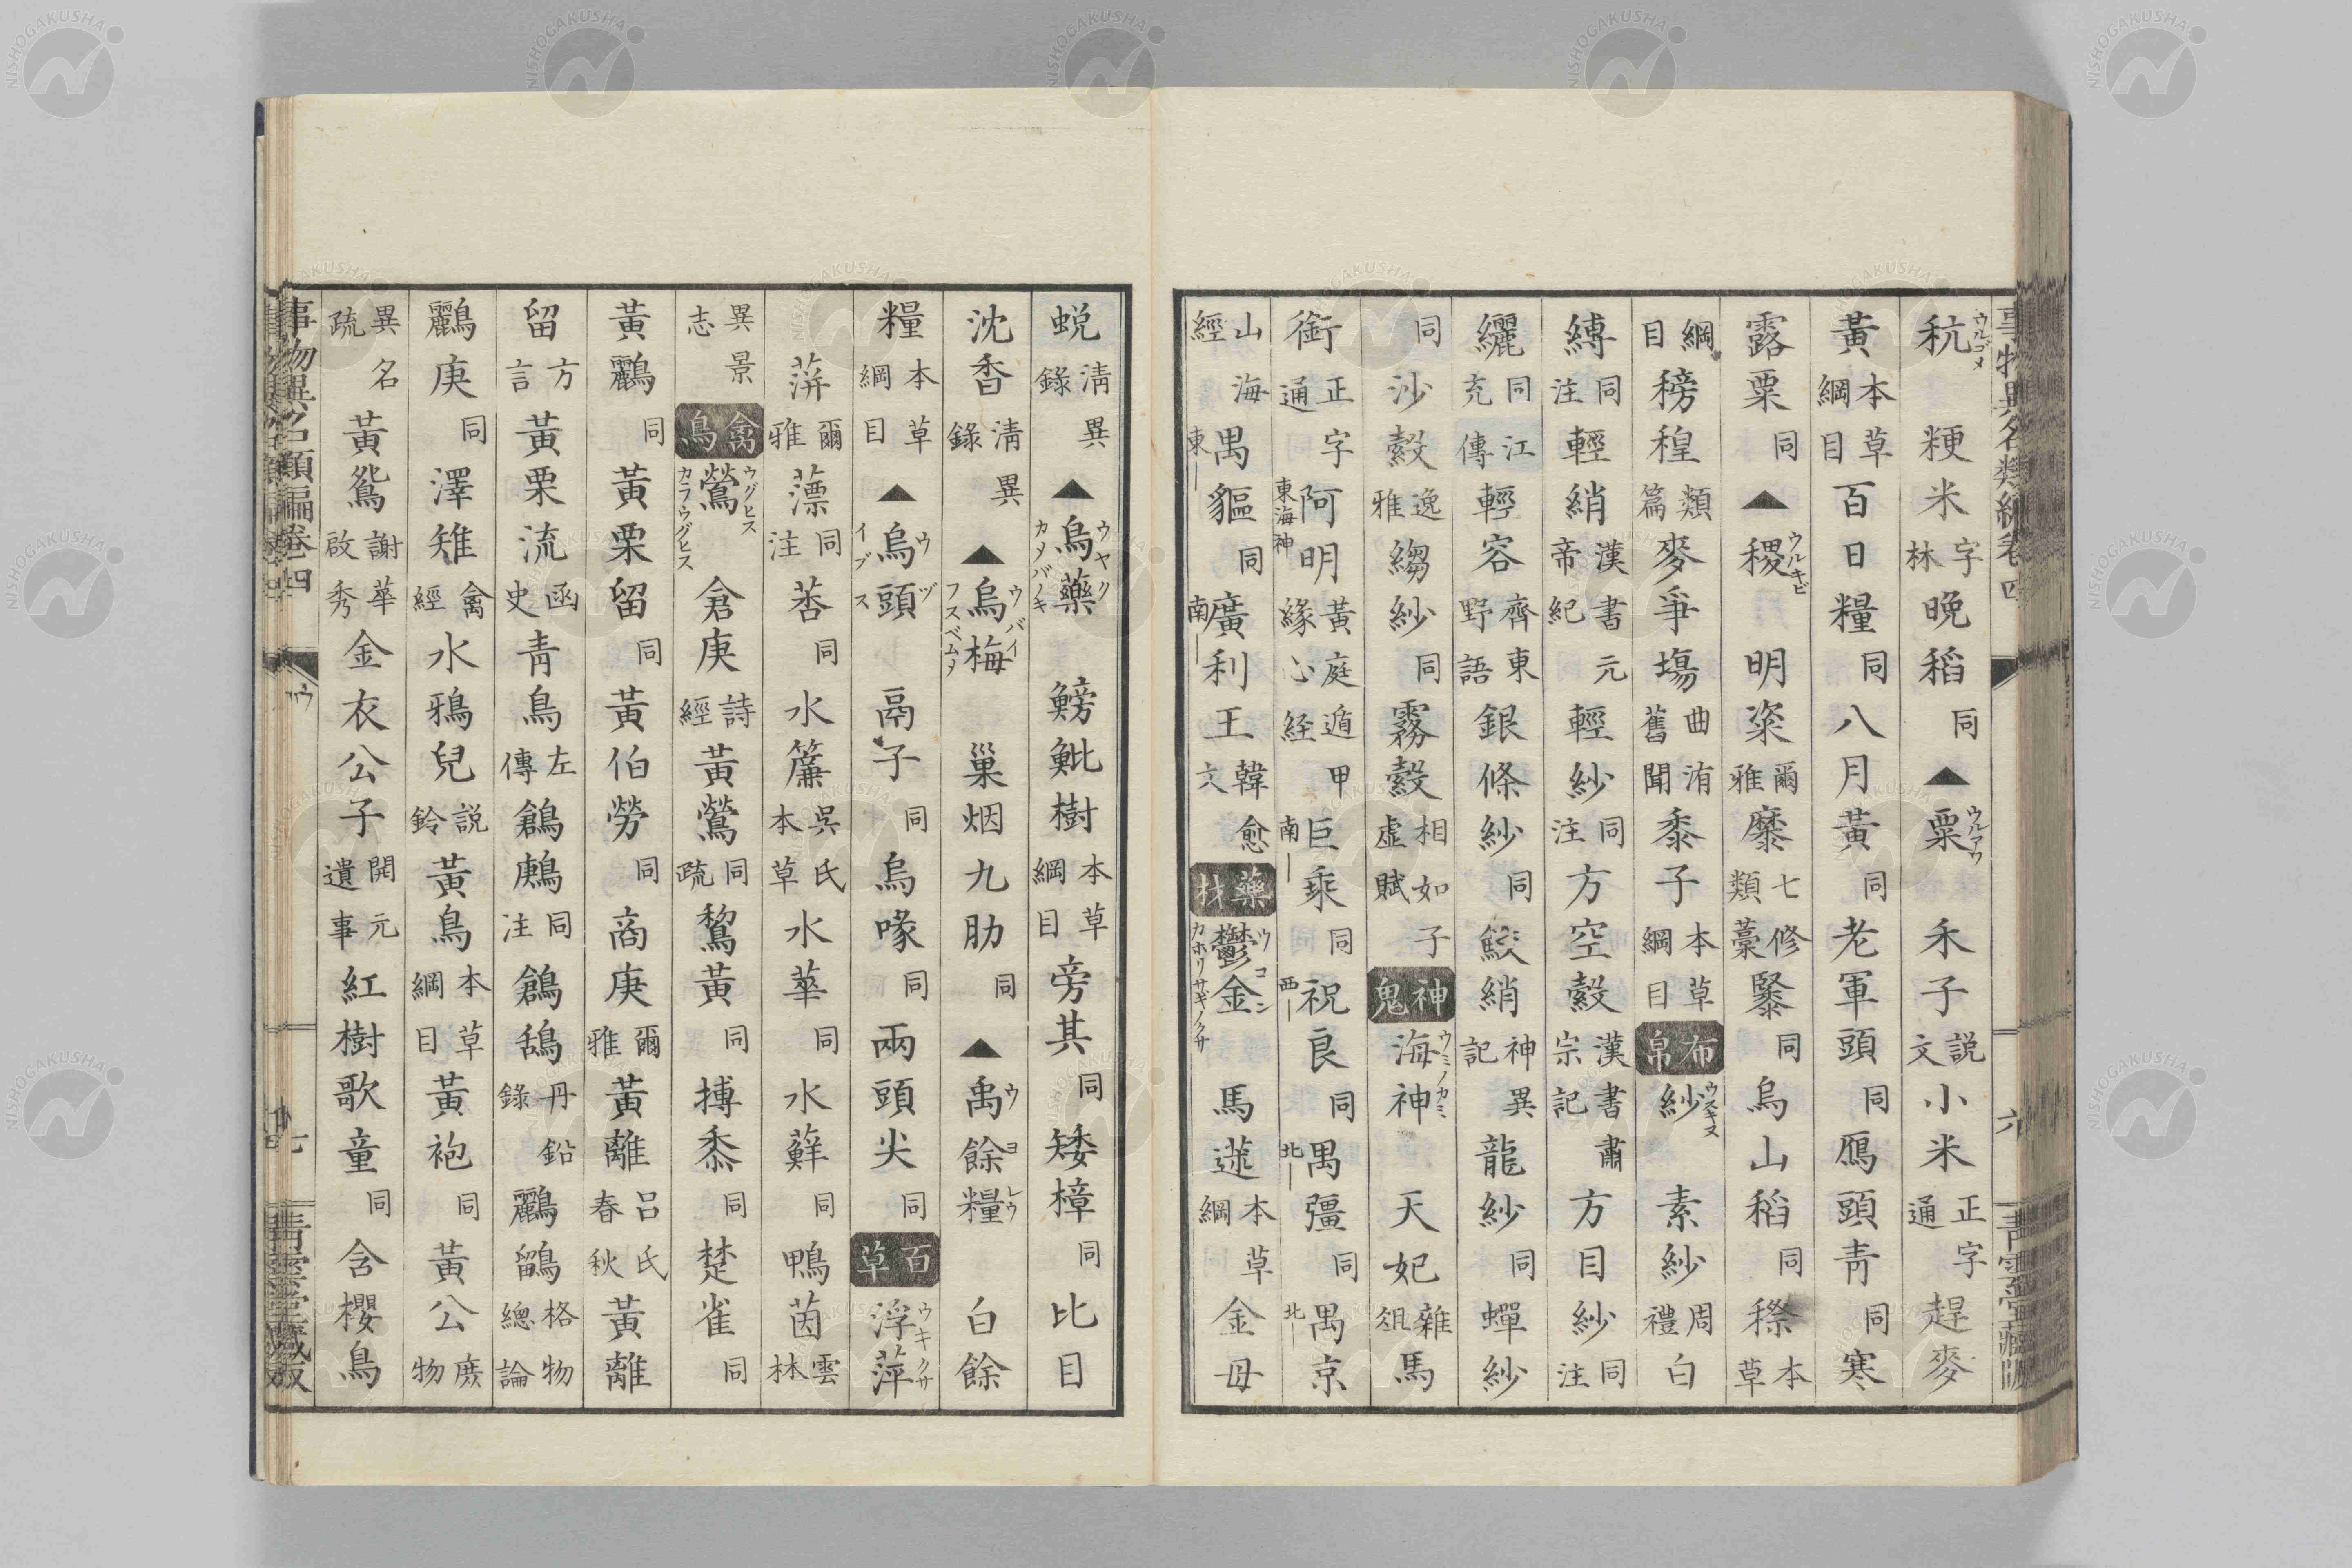 秔ウルゴメ 粳米字林晩稻同▲粟ウルアワ 禾子説文小米正字通趕麥
黃本草綱目百日糧同八月黃同老軍頭同鴈頭青同寒
露粟同▲稷ウルキビ 明粢爾雅䵚七修類藁䵞同烏山稻同穄本草
綱目䅭䅣類篇麥爭場曲洧舊聞黍子本草綱目布帛紗ウスキヌ 素紗周禮白
縳同注輕綃漢書元帝紀輕紗同注方空縠漢書肅宗記方目紗同注
纚同江充傳輕容齊東野語銀條紗同鮫綃神異記龍紗同蟬紗
同沙縠逸雅縐紗同霧縠相如子虛賦神鬼海神ウミノカミ 天妃雜俎馬
銜正字通阿明東海神黃庭遁甲緣心経巨乘南―同祝良西―同禺彊北―同禺京北―
山海經禺䝙東―同廣利王南―韓愈文藥材鬱金ウコン カホリサギノクサ 馬蒁本草綱目金母
蛻淸異錄▲烏藥ウヤク カメバノキ 鰟魮樹本草綱目旁其同矮樟同比目
沈香淸異錄▲烏梅ウバイ フスベムメ 巢烟九肋同▲禹餘糧ウヨレウ 白餘
糧本草綱目▲烏頭ウヅ イブス 鬲子同烏喙同兩頭尖同百草浮萍ウキクサ
蓱爾雅薸同注莕同水簾吳氏本草水華同水蘚同鴨茵雲林
異景志禽鳥鶯ウグヒス カラウグヒス 倉庚詩經黃鶯同疏鶖黃同搏黍同楚雀同
黃鸝同黃栗留同黃伯勞同商庚爾雅黃離呂氏春秋黃離
留方言黃栗流函史靑鳥左傳鶬鶊同注鶬鴰丹鉛錄鸝鶹格物總論
鸝庚同澤雉禽經水鴉兒説鈴黃鳥本草綱目黃袍同黃公廣物
異名疏黃鴛謝華啟秀金衣公子開元遺事紅樹歌童同含櫻鳥
事物異名類編卷四 ウ 七 靑雲堂藏版